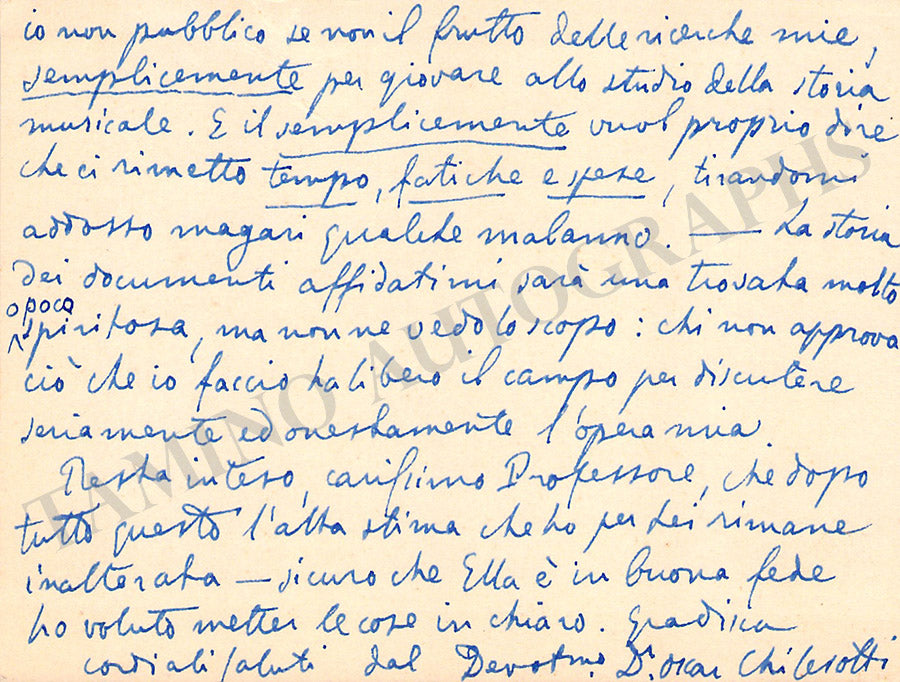 io non pubblico se non il frutto delle ricerche mie,
semplicemente per giovare allo studio della storia
musicale. E il semplicemente vuol proprio dire
che ci rimetto tempo, fatiche e spese, tirandomi
addosso magari qualche malanno. — La storia
dei documenti affidatimi sarà una trovata molto
o poco
spiritosa, ma non ne vedo lo scopo: chi non approva
ciò che io faccio ha libero il campo per discutere
seriamente ed onestamente l'opera mia.
Resta inteso, carissimo Professore, che dopo
tutto questo l'alta stima che ho per Lei rimane
inalterata — sicuro che Ella è in buona fede
ho voluto metter le cose in chiaro. Gradisca
cordiali saluti dal Devotmo. Dr. Oscar Chilesotti
TAMINO AUTOGRAPHS